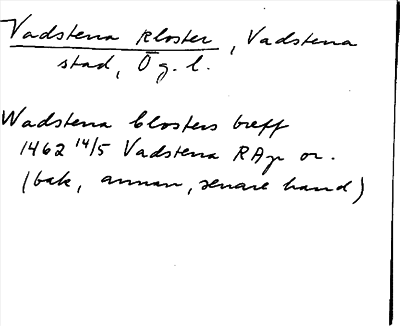 Vadstena kloster, Vadstena
stad, Ög. l.
Wadstena Closters breff
1462 14/5 Vadstena RAp or.
(bak, annan, senare hand)